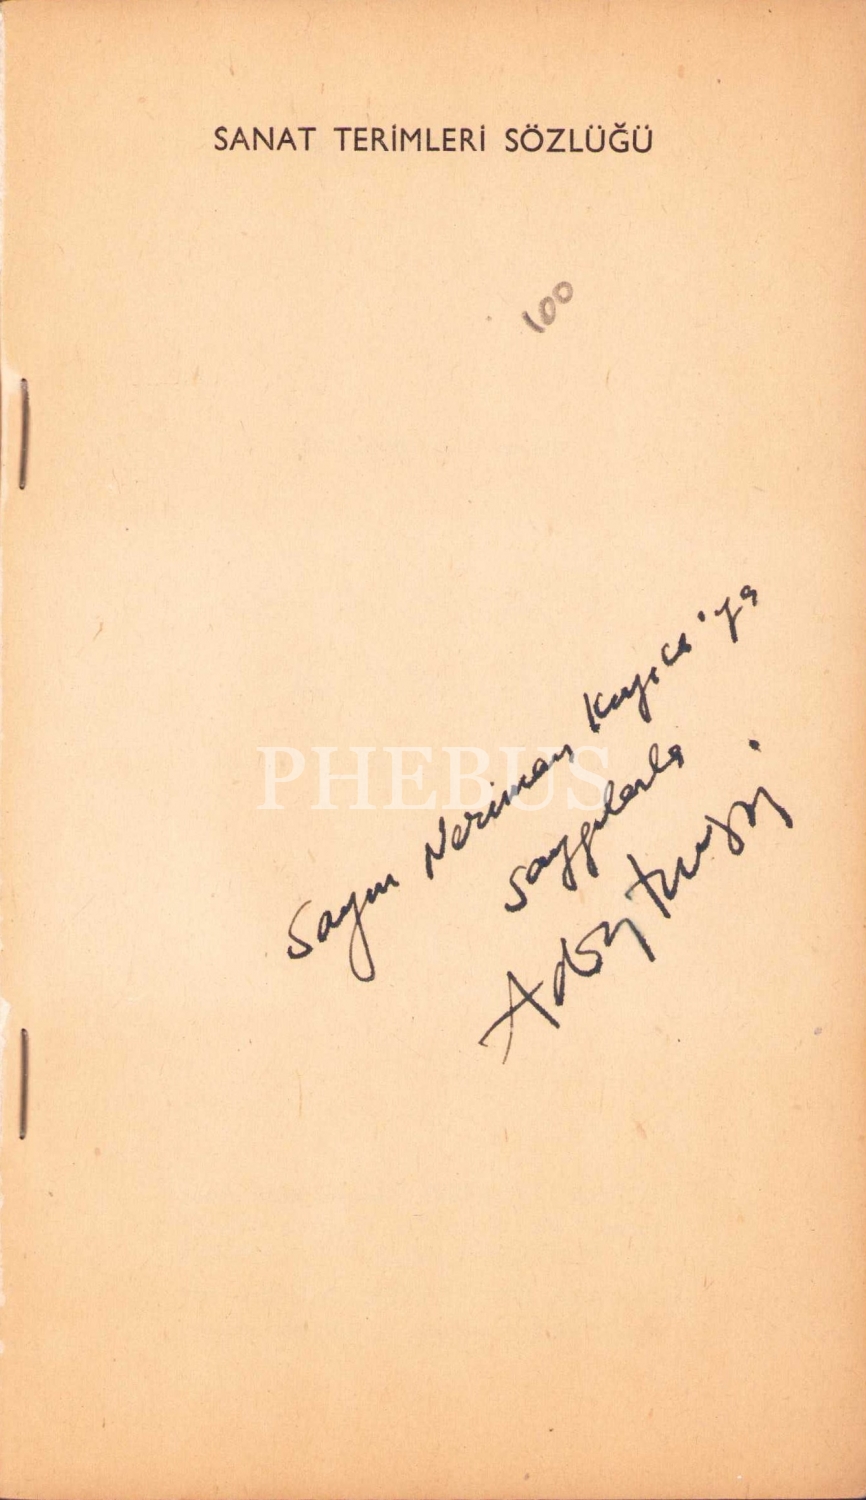 SANAT TERİMLERİ SÖZLÜĞÜ
100
Sayın Neriman Kuyıcı'ya
saygılarla
PHEBUS